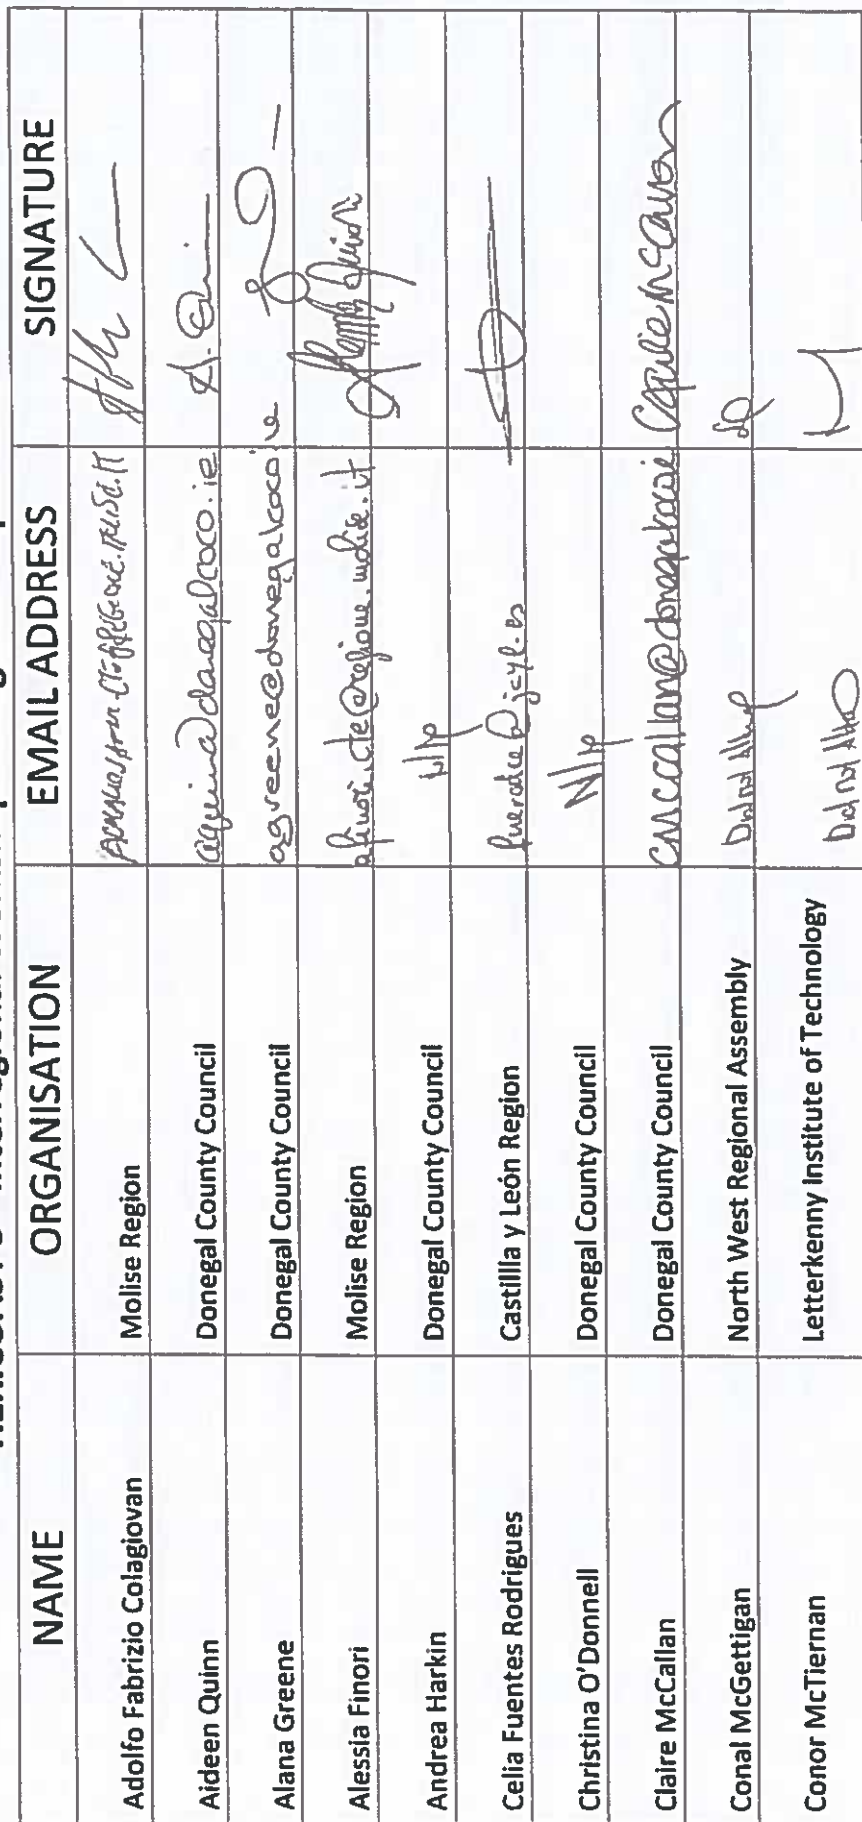 NAME ORGANISATION EMAIL ADDRESS SIGNATURE
Adolfo Fabrizio Colagiovan Molise Region
Aideen Quinn Donegal County Council aquinn@donegalcoco.ie A. Quinn
Alana Greene Donegal County Council agreene@donegalcoco.ie
Alessia Finori Molise Region afinori.cte@regione.molise.it
Andrea Harkin Donegal County Council N/A
Celia Fuentes Rodrigues Castillla y León Region fuerodce@jcyl.es
Christina O'Donnell Donegal County Council N/A
Claire McCallan Donegal County Council cmccallan@donegalcoco.ie Claire McCallan
Conal McGettigan North West Regional Assembly Did not Attend
Conor McTiernan Letterkenny Institute of Technology Did not Attend